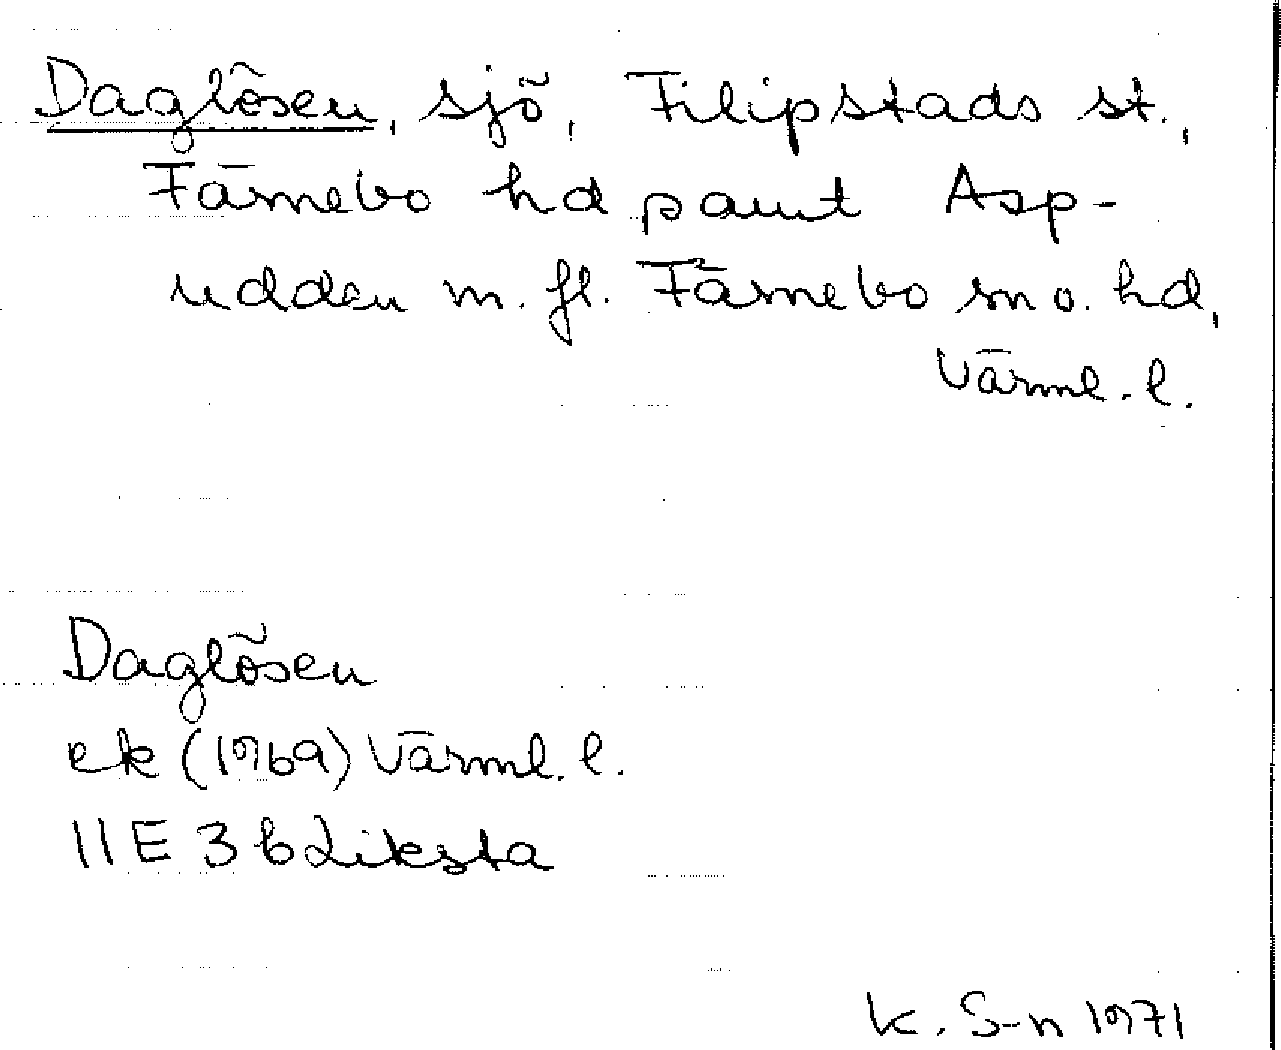 Daglösen, sjö, Filipstads st.,
Färnebo hd samt Asp-
udden m. fl. Färnebo sn o. hd,
Värml. l.
Daglösen
ek (1969) Värml. l.
11E 3b Liksta
K. S-n 1971